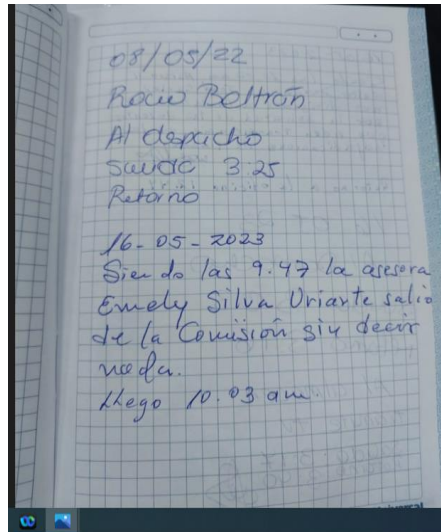 08/05/22
Rocio Beltrán
Al despacho
Salida 3:25
Retorno
16-05-2023
Siendo las 9.47 la asesora
Emely Silva Uriarte salio
de la Comisión sin decir
nada.
LLego 10.03 am.